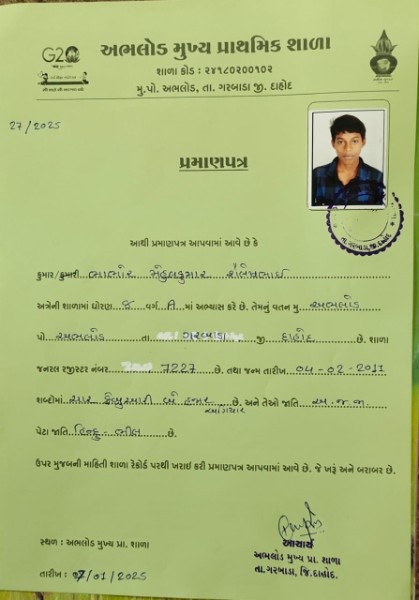 G20
અભલોડ મુખ્ય પ્રાથમિક શાળા
શાળા કોડ : ૨૪૧૮૦૨૦૦૧૦૨
મુ.પો. અભલોડ, તા. ગરબાડા જી. દાહોદ
27/2025
પ્રમાણપત્ર
તા.ગરબાડા, જી.દાહોદ
આથી પ્રમાણપત્ર આપવામાં આવે છે કે
કુમાર/કુમારી ભાભોર મેહુલકુમાર શૈલેષભાઈ
અત્રેની શાળામાં ધોરણ ૮ વર્ગ A માં અભ્યાસ કરે છે. તેમનું વતન મુ. અભલોડ
પો. અભલોડ તા. ગરબાડા જી દાહોદ છે. શાળા
જનરલ રજીસ્ટર નંબર 7227 છે. તથા જન્મ તારીખ ૦૫-૦૨-2011
શબ્દોમાં ફેબ્રુઆરી બે હજાર અગિયાર છે. અને તેઓ જાતિ અ.જ.જા.
પેટા જાતિ હિન્દુ - ભીલ છે.
ઉપર મુજબની માહિતી શાળા રેકોર્ડ પરથી ખરાઈ કરી પ્રમાણપત્ર આપવામાં આવે છે. જે ખરૂં અને બરાબર છે.
સ્થળ : અભલોડ મુખ્ય પ્રા. શાળા
તારીખ : 07/01/2025
આચાર્ય
અભલોડ મુખ્ય પ્રા. શાળા
તા.ગરબાડા, જિ.દાહોદ.